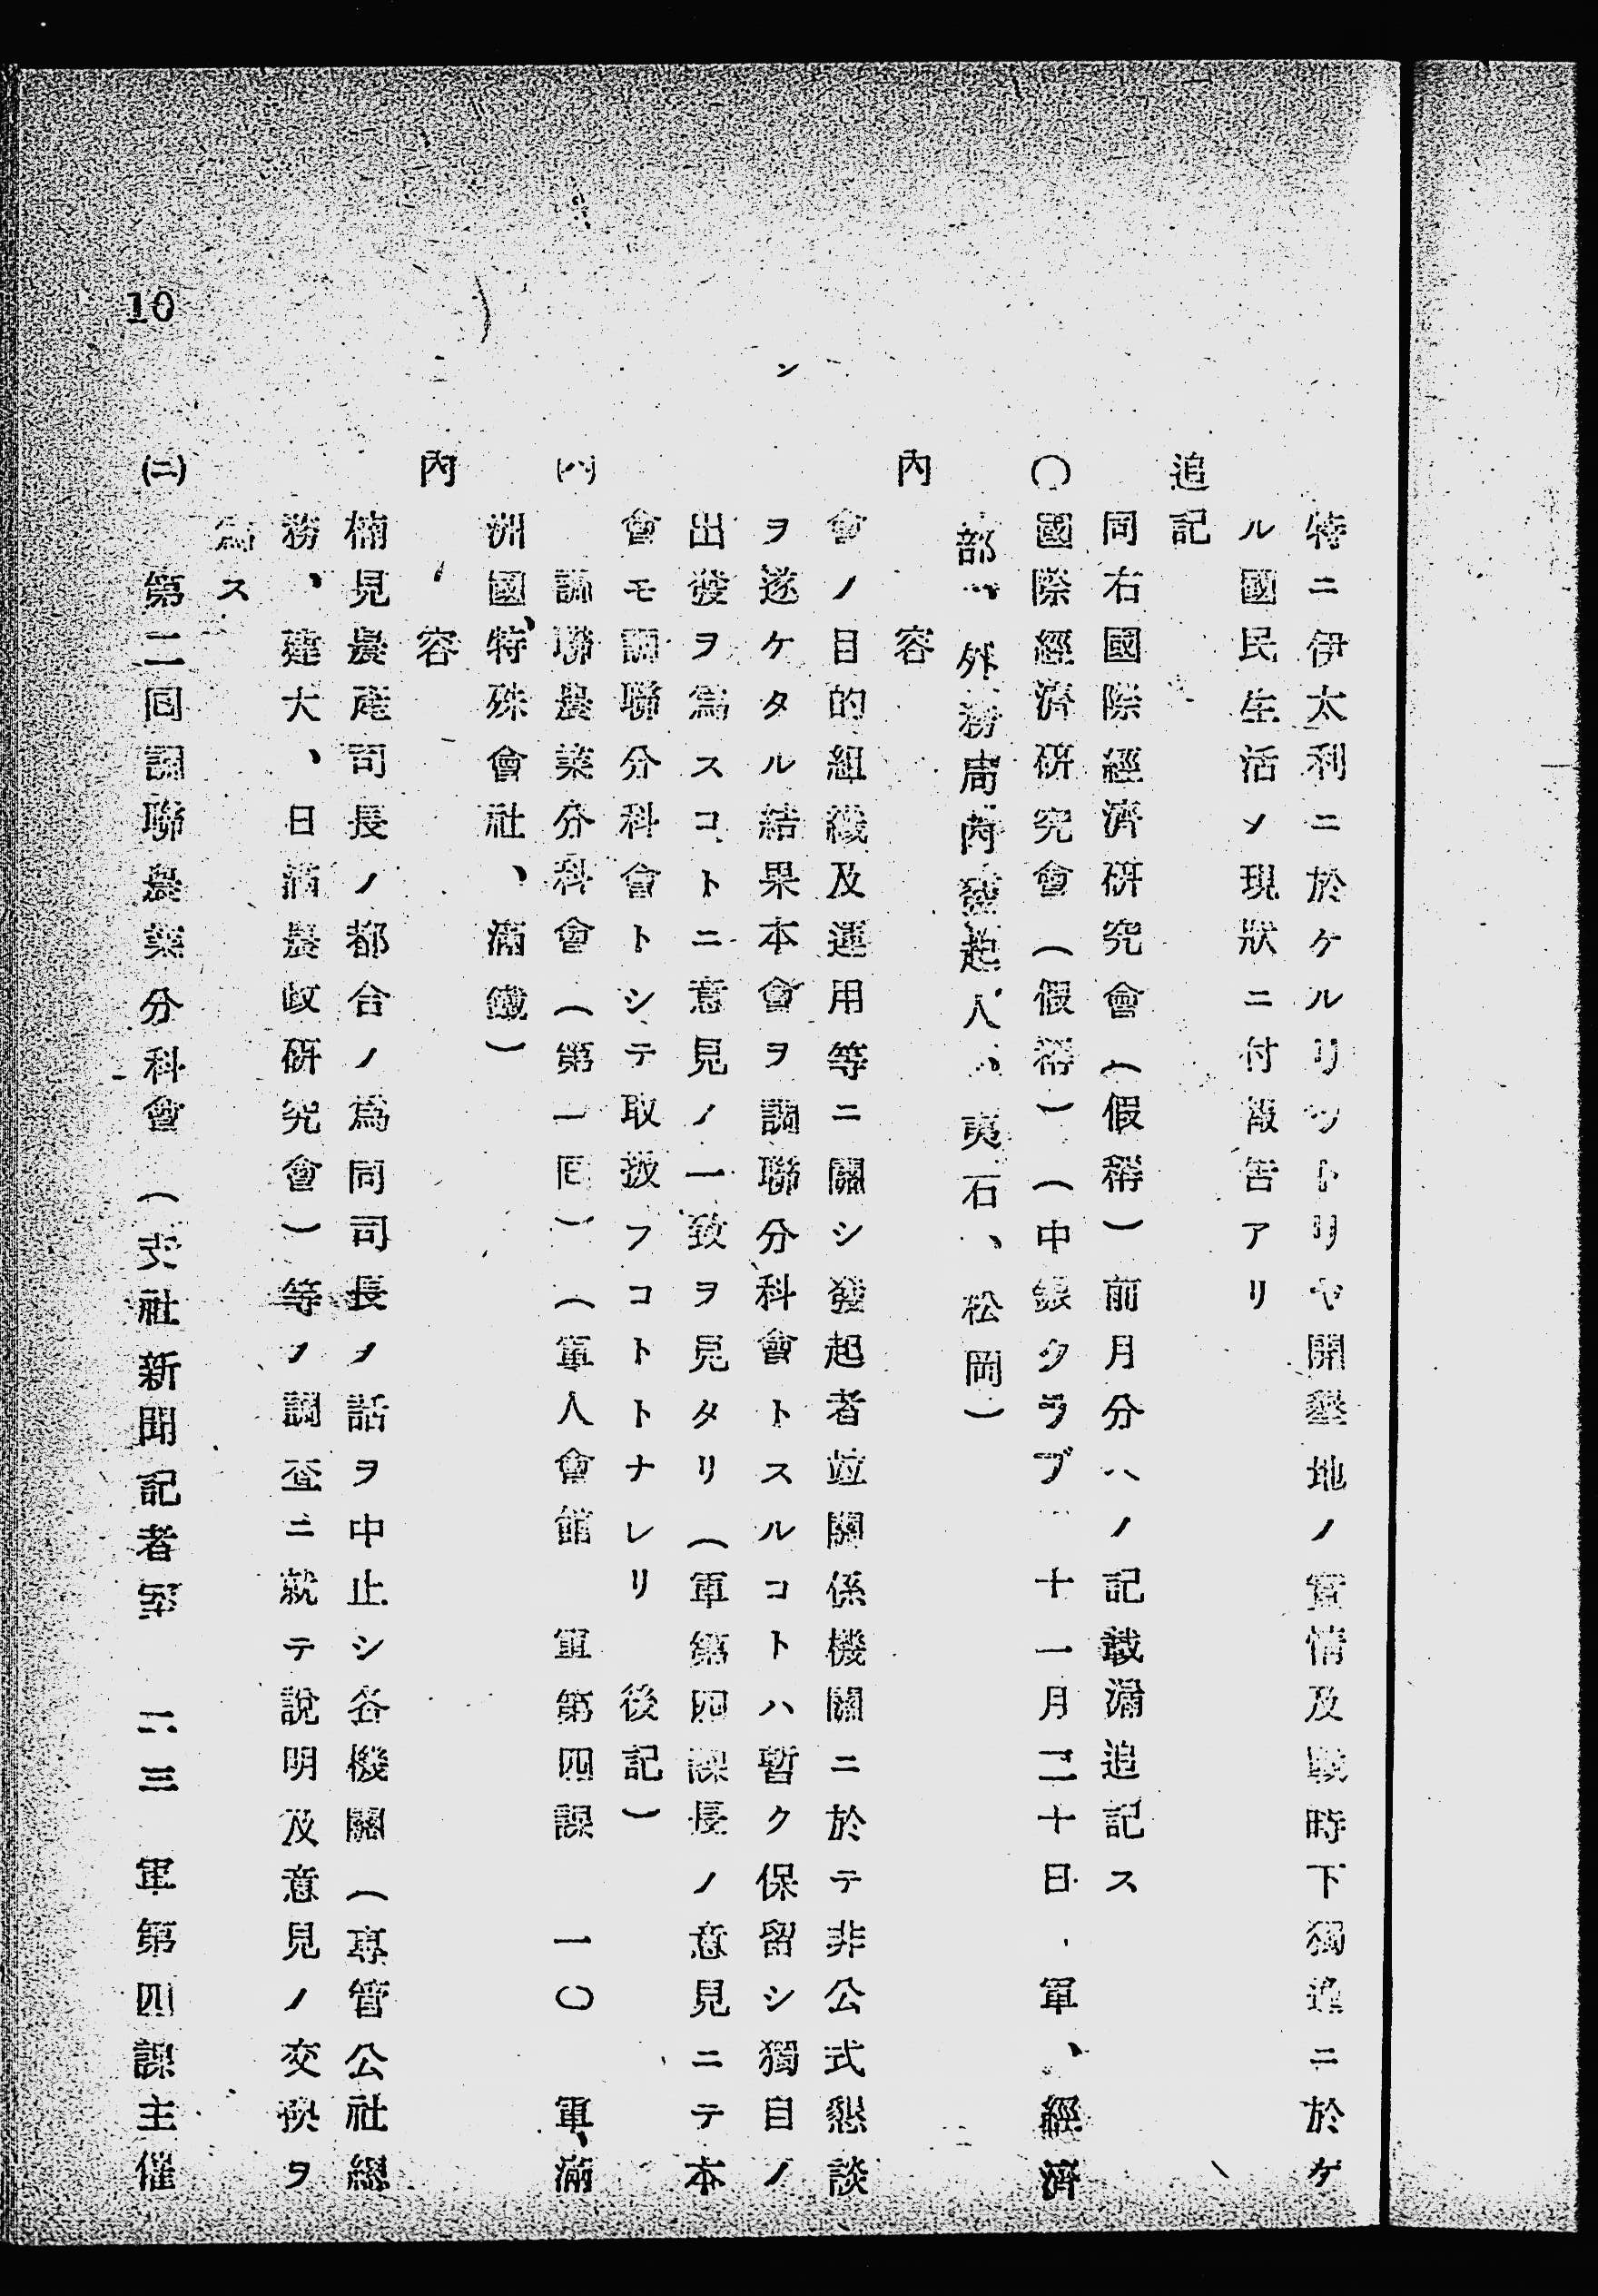 特ニ伊太利ニ於ケルリツトリヤ開墾地ノ實情及戰時下獨逸ニ於ケ
ル國民生活ノ現狀ニ付報告アリ
追記
同右國際經濟硏究會（假稱）前月分ハノ記載漏追記ス
〇國際經濟硏究會（假稱）（中銀クラブ 十一月二十日 軍、經濟
部、外務局內發起人、夷石、松岡）
內容
會ノ目的組織及運用等ニ關シ發起者竝關係機關ニ於テ非公式懇談
ヲ遂ケタル結果本會ヲ調聯分科會トスルコトハ暫ク保留シ獨自ノ
出發ヲ爲スコトニ意見ノ一致ヲ見タリ（軍第四課長ノ意見ニテ本
會モ調聯分科會トシテ取扱フコトトナレリ 後記）
(ハ) 調聯農業分科會（第一囘）（軍人會館 軍第四課 一〇 軍、滿
洲國、特殊會社、滿鐵）
內容
楠見農産司長ノ都合ノ爲同司長ノ話ヲ中止シ各機關（專管公社總
務、建大、日滿農政硏究會）等ノ調査ニ就テ說明及意見ノ交換ヲ
爲ス
(ニ) 第二囘調聯農業分科會（ 社新聞記者 三 軍第四課主催
10